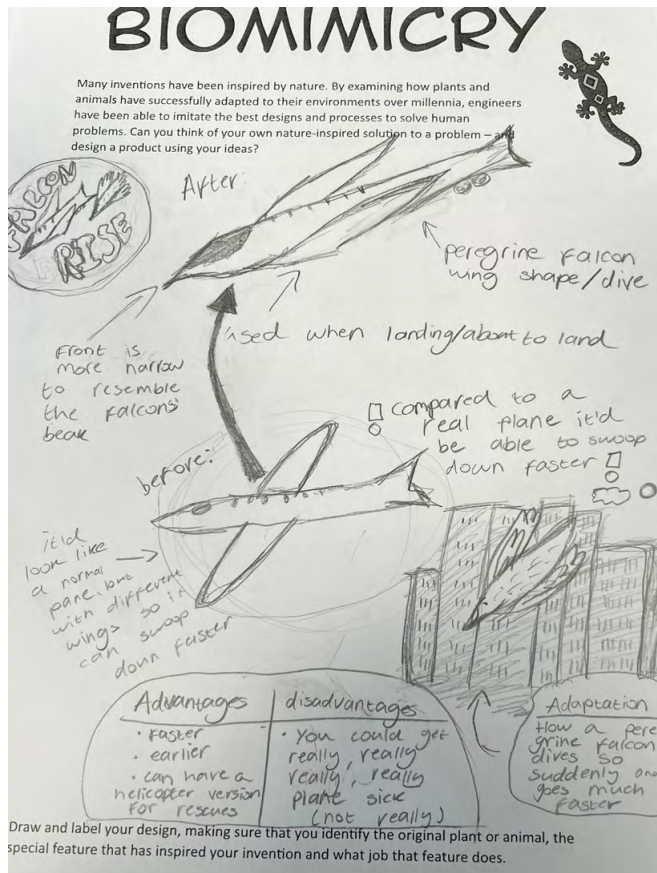 BIOMIMICRY
Many inventions have been inspired by nature. By examining how plants and
animals have successfully adapted to their environments over millennia, engineers
have been able to imitate the best designs and processes to solve human
problems. Can you think of your own nature-inspired solution to a problem – and
design a product using your ideas?
FALCON
RISE
After:
peregrine falcon
wing shape/dive
used when landing/about to land
Front is
more narrow
to resemble
the falcons'
beak
compared to a
real plane it'd
be able to swoop
down faster
before:
it'd
look like
a normal
pane, but
with different
wings so it
can swoop
down faster
Advantages
· faster
· earlier
· can have a
helicopter version
for rescues
disadvantages
· You could get
really, really
really, really
plane sick
(not really)
Adaptation
How a pere
grine falcon
dives so
suddenly and
goes much
faster
Draw and label your design, making sure that you identify the original plant or animal, the
special feature that has inspired your invention and what job that feature does.